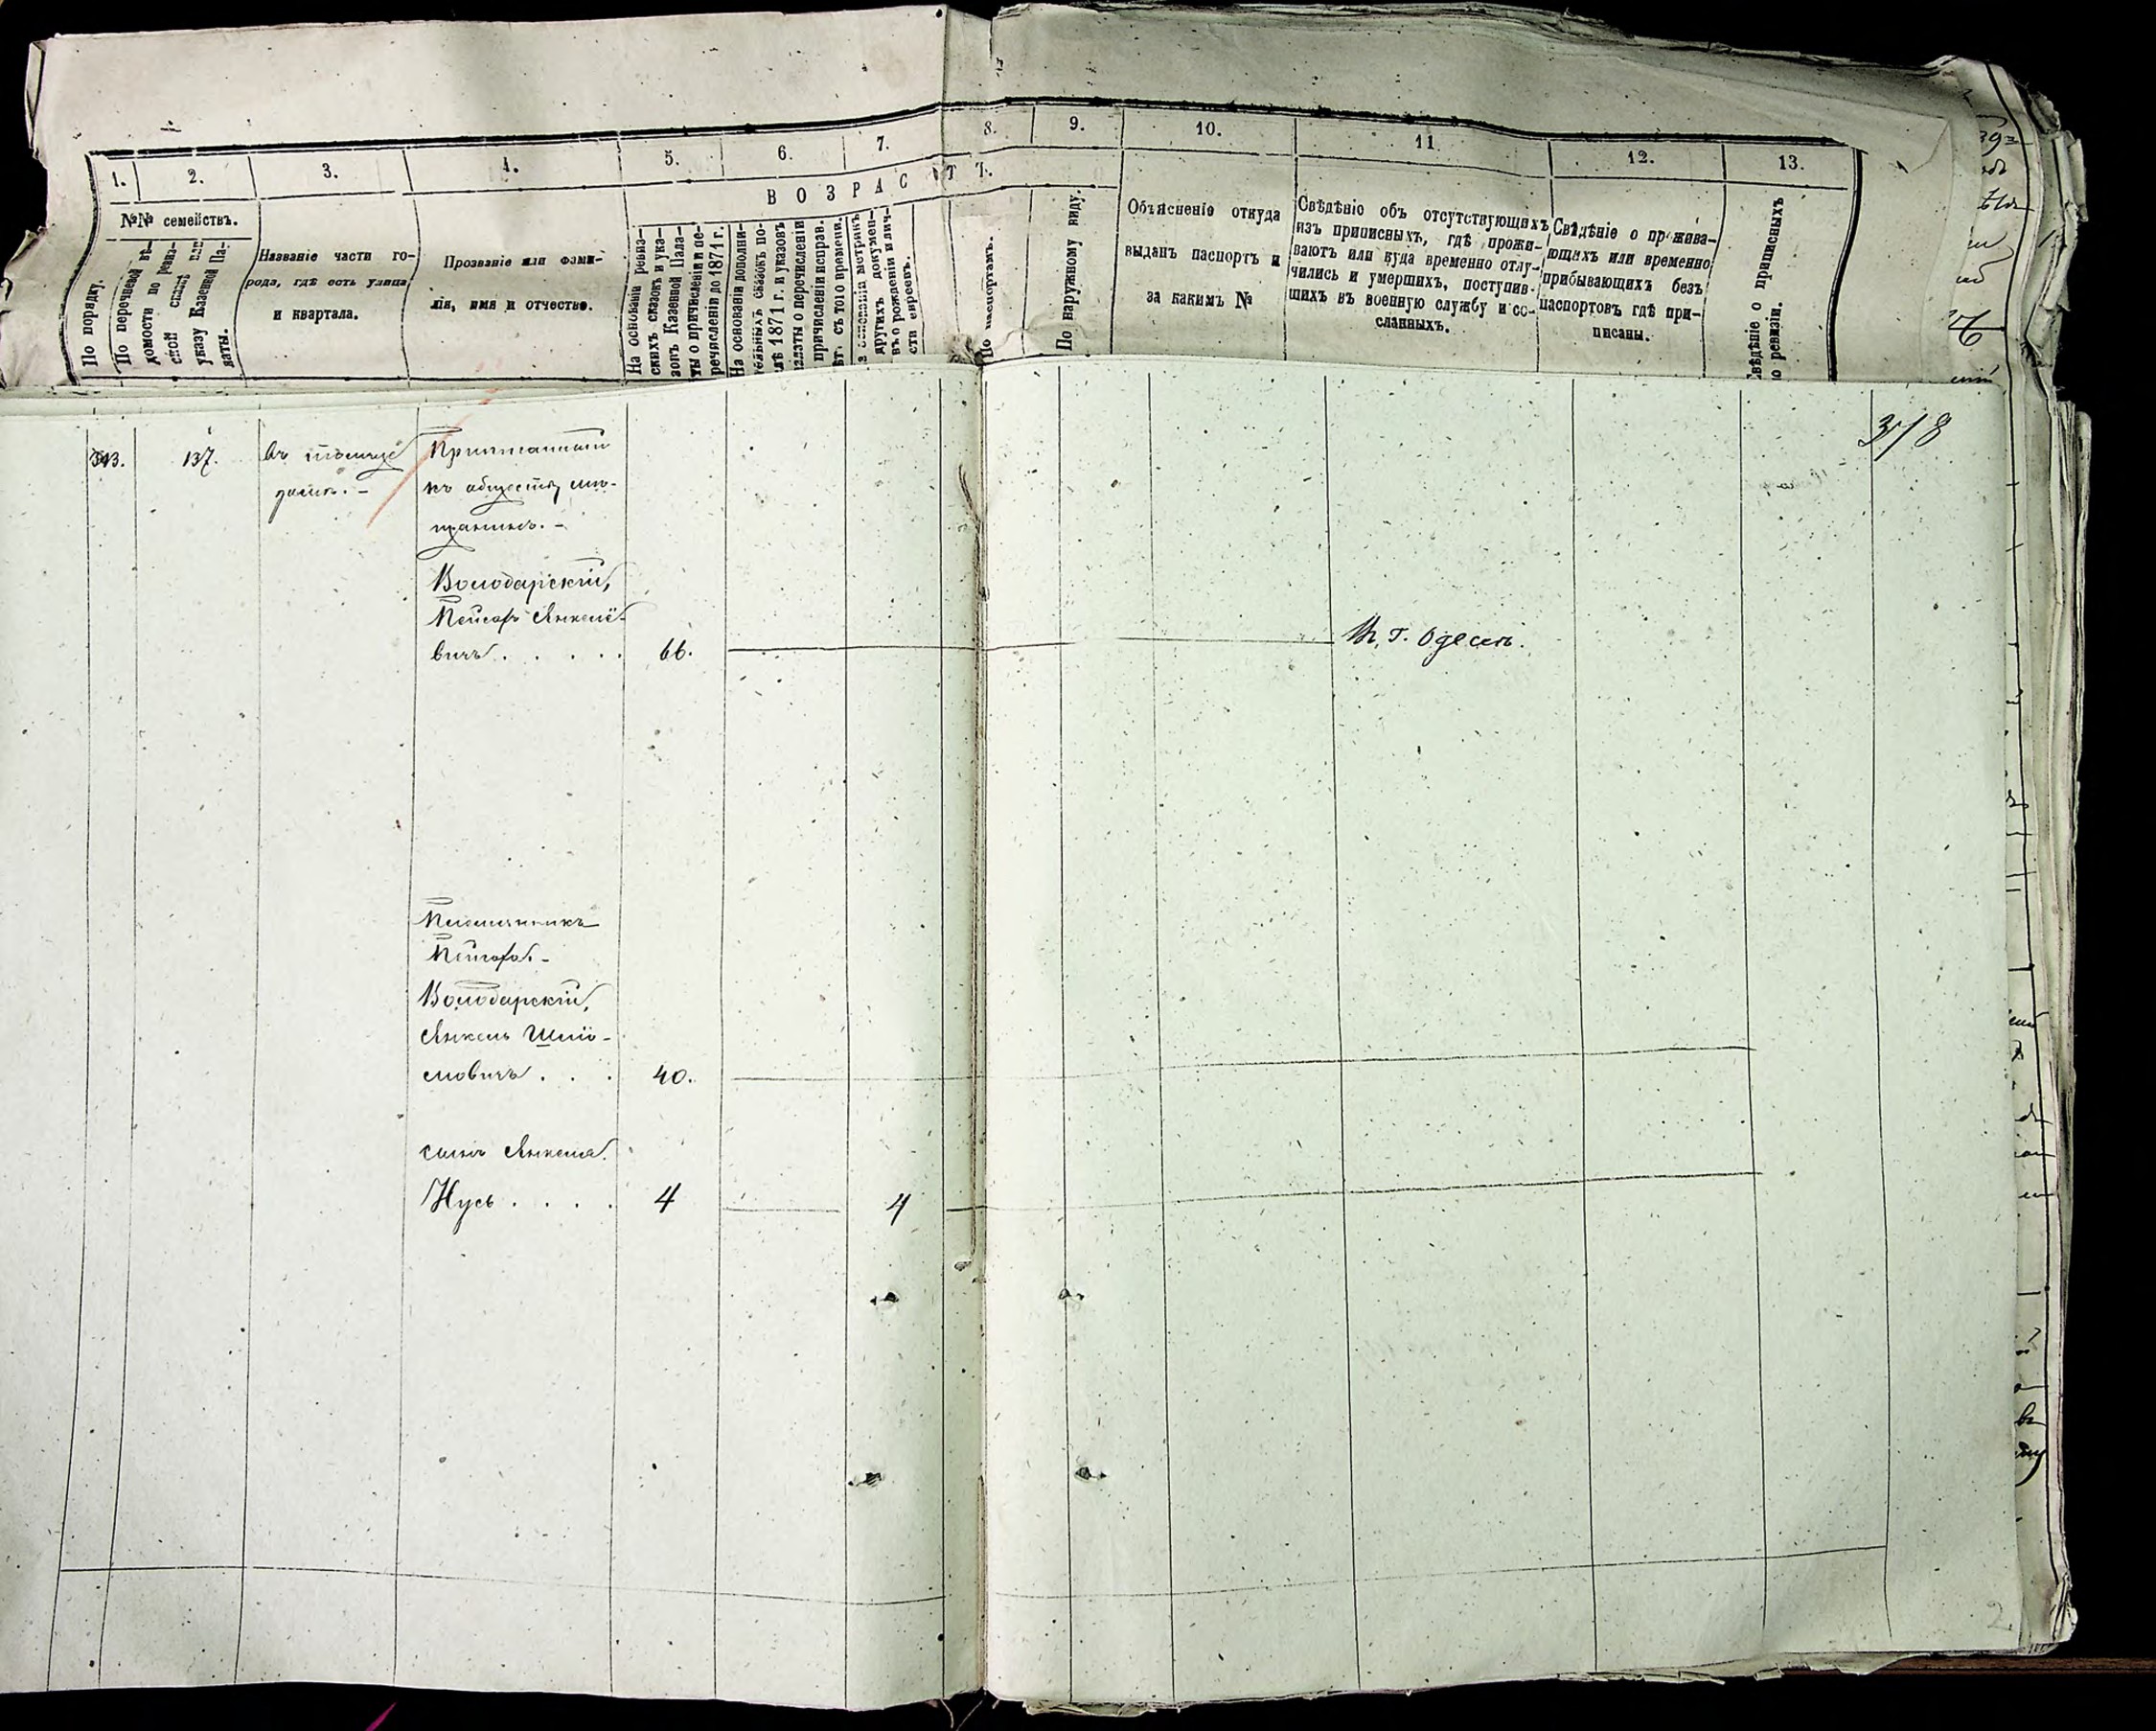 1.
2.
3.
4.
5.
6.
7.
8.
9.
10.
11.
12.
13.
ВОЗРАСТЪ.
№№ семействъ.
По порядку.
По перечневой вѣ-
домости по ревиз-
ской сказкѣ или
указу Казенной Па-
латы.
Названіе части го-
рода, гдѣ есть улица
и квартала.
Прозваніе или фами-
лія, имя и отчество.
На основаніи ревиз-
скихъ сказокъ и ука-
зовъ Казенной Пала-
ты о причисленіи и пе-
речисленіи до 1871 г.
На основаніи дополни-
тельныхъ сказокъ по-
слѣ 1871 г. и указовъ
палаты о перечисленіи
причисленіи исправ.
лѣт. съ того времени.
На основаніи метрикъ
другихъ докумен-
въ о рожденіи и лич-
сти евреевъ.
По паспортамъ.
По наружному виду.
Объясненіе откуда
выданъ паспортъ и
за какимъ №
Свѣдѣніе объ отсутствующихъ
изъ приписныхъ, гдѣ прожи-
ваютъ или куда временно отлу-
чились и умершихъ, поступив-
шихъ въ военную службу и со-
сланныхъ.
Свѣдѣніе о прожива-
ющихъ или временно
прибывающихъ безъ
паспортовъ гдѣ при-
писаны.
Свѣдѣніе о приписныхъ
по ревизіи.
378
343.
137.
Въ
домѣ. -
къ обществу
Володарскій,
Пейсахъ Янкеле-
вичъ . . . . .
66.
Въ г. Одессѣ.
Племянникъ
Пейсаха. -
Володарскій,
Янкель Шлио-
мовичъ . . .
40.
сынъ Янкеля.
Нусь . . . .
4
4